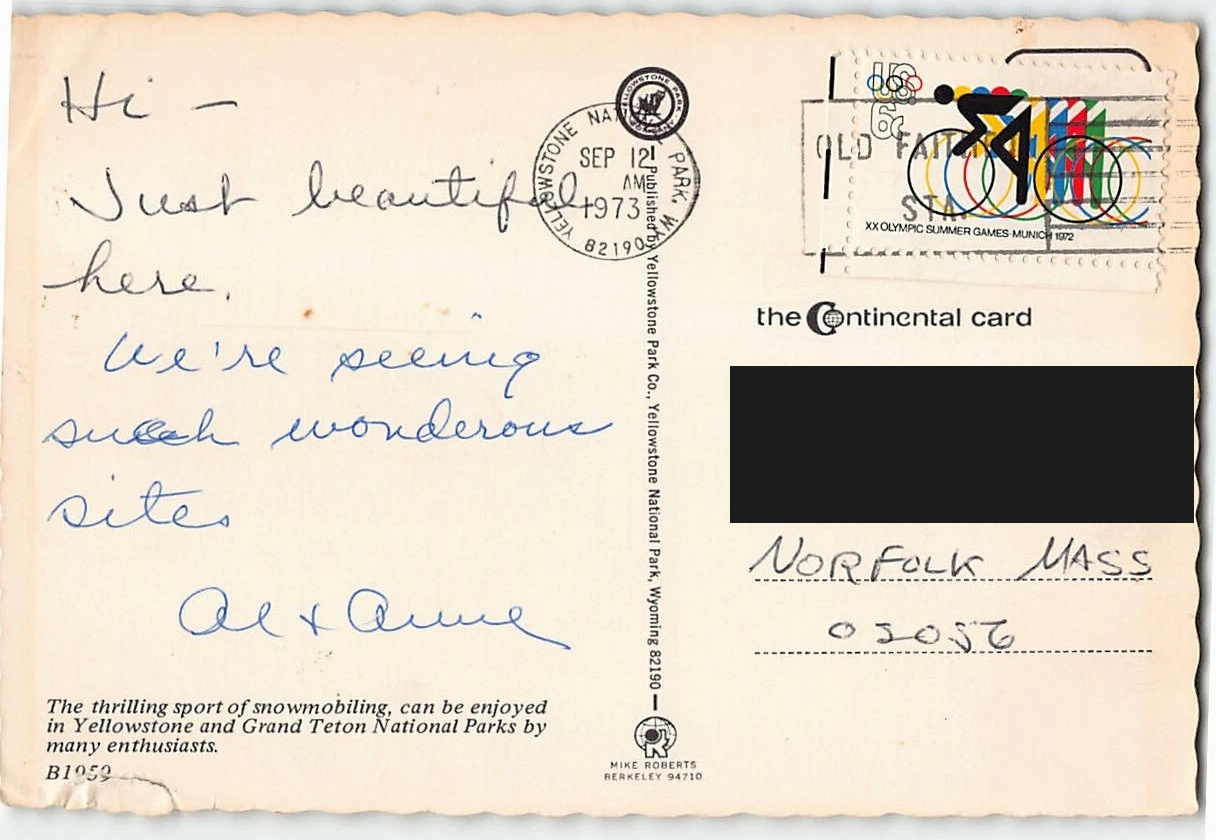 Hi -
Just beautiful
here.
We're seeing
such wonderous
sites
Al + Anne
The thrilling sport of snowmobiling, can be enjoyed
in Yellowstone and Grand Teton National Parks by
many enthusiasts.
B1959
YELLOWSTONE PARK COMPANY
YELLOWSTONE NATIONAL PARK, WY
SEP 12
AM
1973
82190
Published by Yellowstone Park Co., Yellowstone National Park, Wyoming 82190
MIKE ROBERTS
BERKELEY 94710
OLD FAITHFUL
STA.
US
6c
XX OLYMPIC SUMMER GAMES·MUNICH 1972
the Continental card
NORFOLK MASS
02056